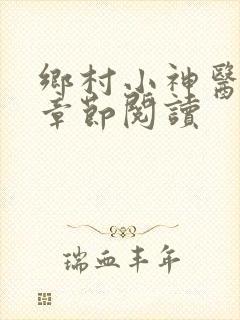 鄉村小神醫
章節閱讀
瑞血丰年